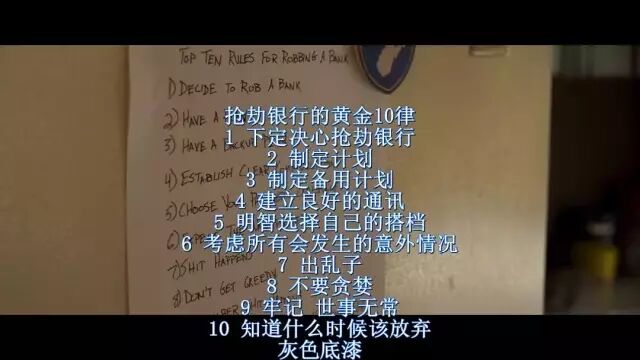 TOP TEN RULES FOR ROBBING A BANK
1) DECIDE TO ROB A BANK
2) HAVE A
3) HAVE A BACKUP
4) ESTABLISH CLEAR
5) CHOOSE YOUR
6) EXPECT THE
7) SHIT HAPPENS
8) DON'T GET GREEDY
抢劫银行的黄金10律
1 下定决心抢劫银行
2 制定计划
3 制定备用计划
4 建立良好的通讯
5 明智选择自己的搭档
6 考虑所有会发生的意外情况
7 出乱子
8 不要贪婪
9 牢记 世事无常
10 知道什么时候该放弃
灰色底漆